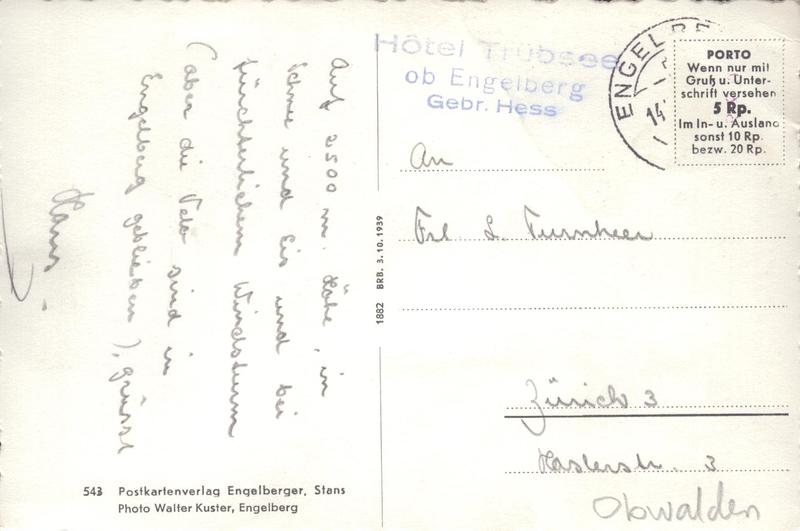 Auf 2500 m. Höhe, in
Schnee und Eis und bei
fürchterlichem Windsturm
(aber die Velo sind in
Engelberg geblieben), grüsst
Hans.
543 Postkartenverlag Engelberger, Stans
Photo Walter Kuster, Engelberg
1882 BRB. 3.10.1939
Hôtel Trübsee
ob Engelberg
Gebr. Hess
ENGELBE
14.
PORTO
Wenn nur mit
Gruß u. Unter-
schrift versehen
5 Rp.
Im In- u. Ausland
sonst 10 Rp.
bezw. 20 Rp.
An
Frl L. Turnheer
Zürich 3
Haslerstr. 3
Obwalden